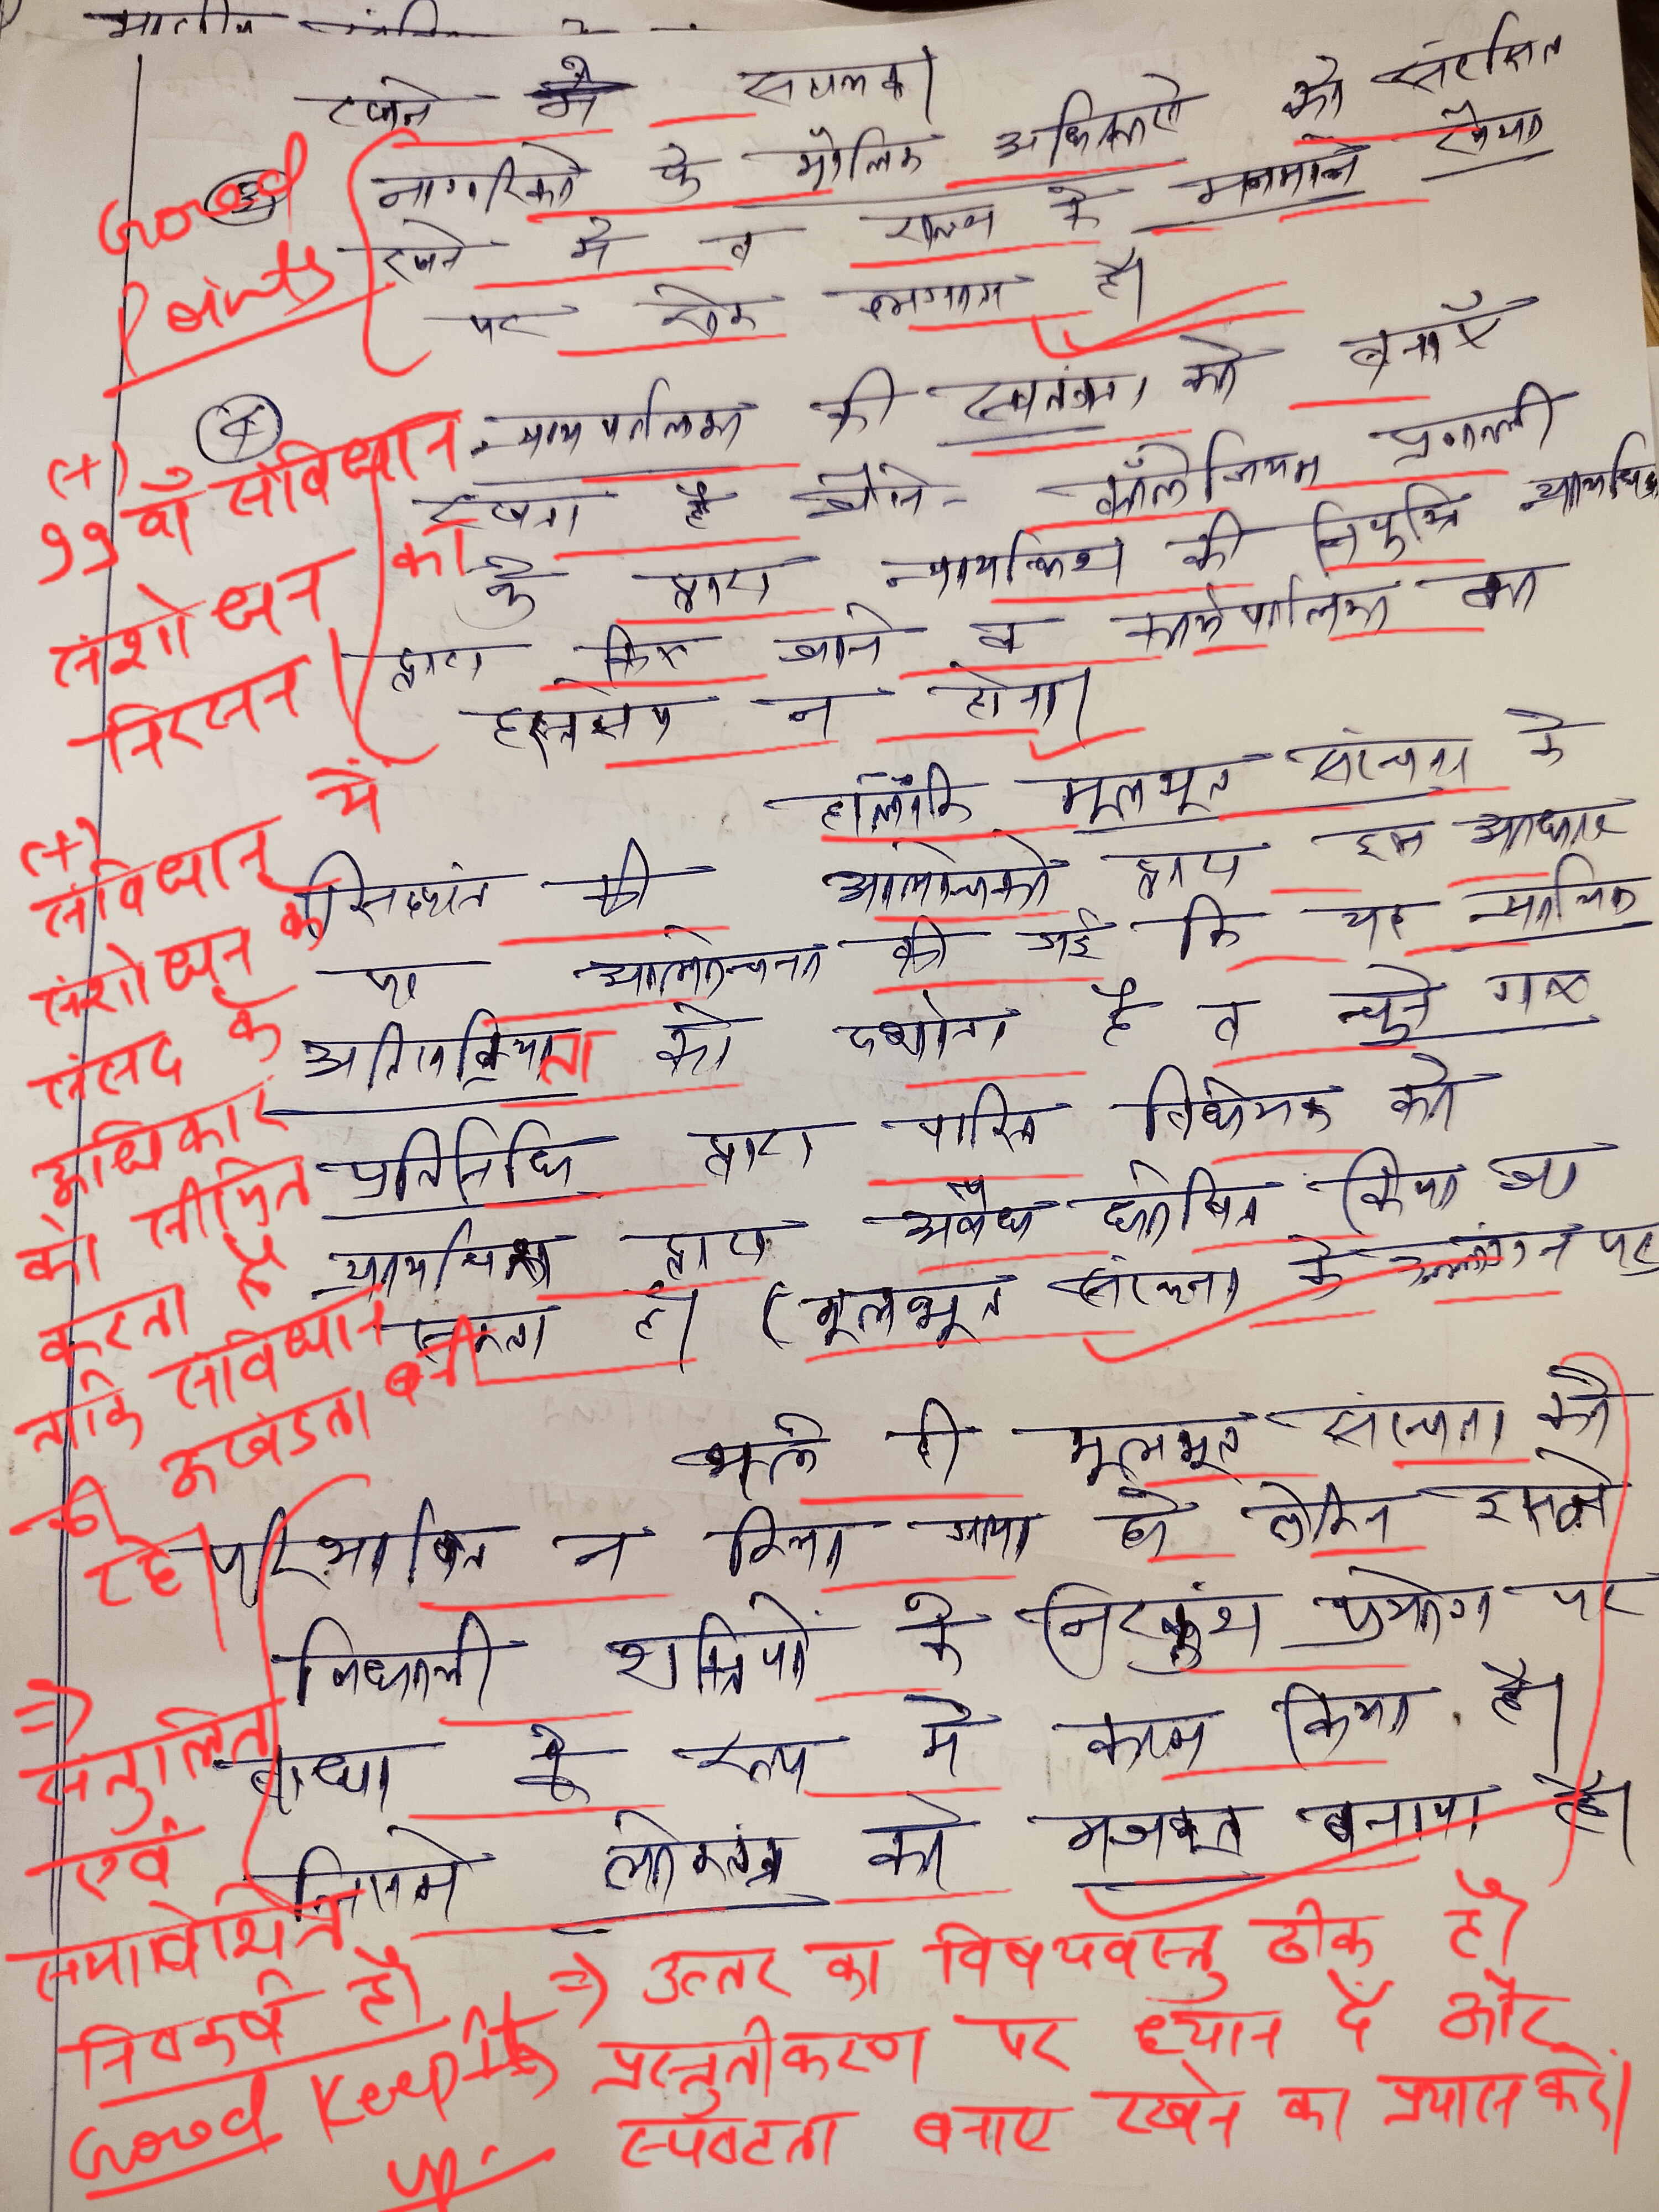 रखने में सहायक।
③ नागरिकों के मौलिक अधिकारों को संरक्षित
रखने में व राज्य के मनमाने रवैया
पर रोक लगाना है।
Good Points
④ न्यायपालिका की स्वतंत्रता को बनाएँ
रखना है जैसे- कॉलेजियम प्रणाली
के द्वारा न्यायधिश की नियुक्ति न्यायधिश
द्वारा किए जाने व कार्यपालिका का
हस्तक्षेप न होना।
(+)
99वाँ संविधान
संशोधन का
निरसन
हालाँकि मूलभूत संरचना के
सिद्धांत की आलोचको द्वारा इस आधार
पर आलोचना की गई कि यह न्यायिक
अतिसक्रियता को दर्शाता है व चुने गए
प्रतिनिधि द्वारा पारित विधेयक को
न्यायधिश द्वारा अवैध घोषित किया जा
सकता है। (मूलभूत संरचना के उल्लंघन पर
(+)
संविधान में
संशोधन के
संसद के
अधिकार
को सीमित
करता है
ताकि संविधान
की अखंडता बनी
रहे।
भले ही मूलभूत संरचना को
परिभाषित न किया गया हो लेकिन इसने
विधायी शक्तियों के निरंकुश प्रयोग पर
बाधा के रूप में काम किया है।
जिसने लोकतंत्र को मजबूत बनाया है।
⇒
संतुलित
एवं
समावेशित
निष्कर्ष है।
Good Keep it up.
⇒ उत्तर का विषयवस्तु ठीक है।
प्रस्तुतीकरण पर ध्यान दें और
स्पष्टता बनाए रखने का प्रयास करें।